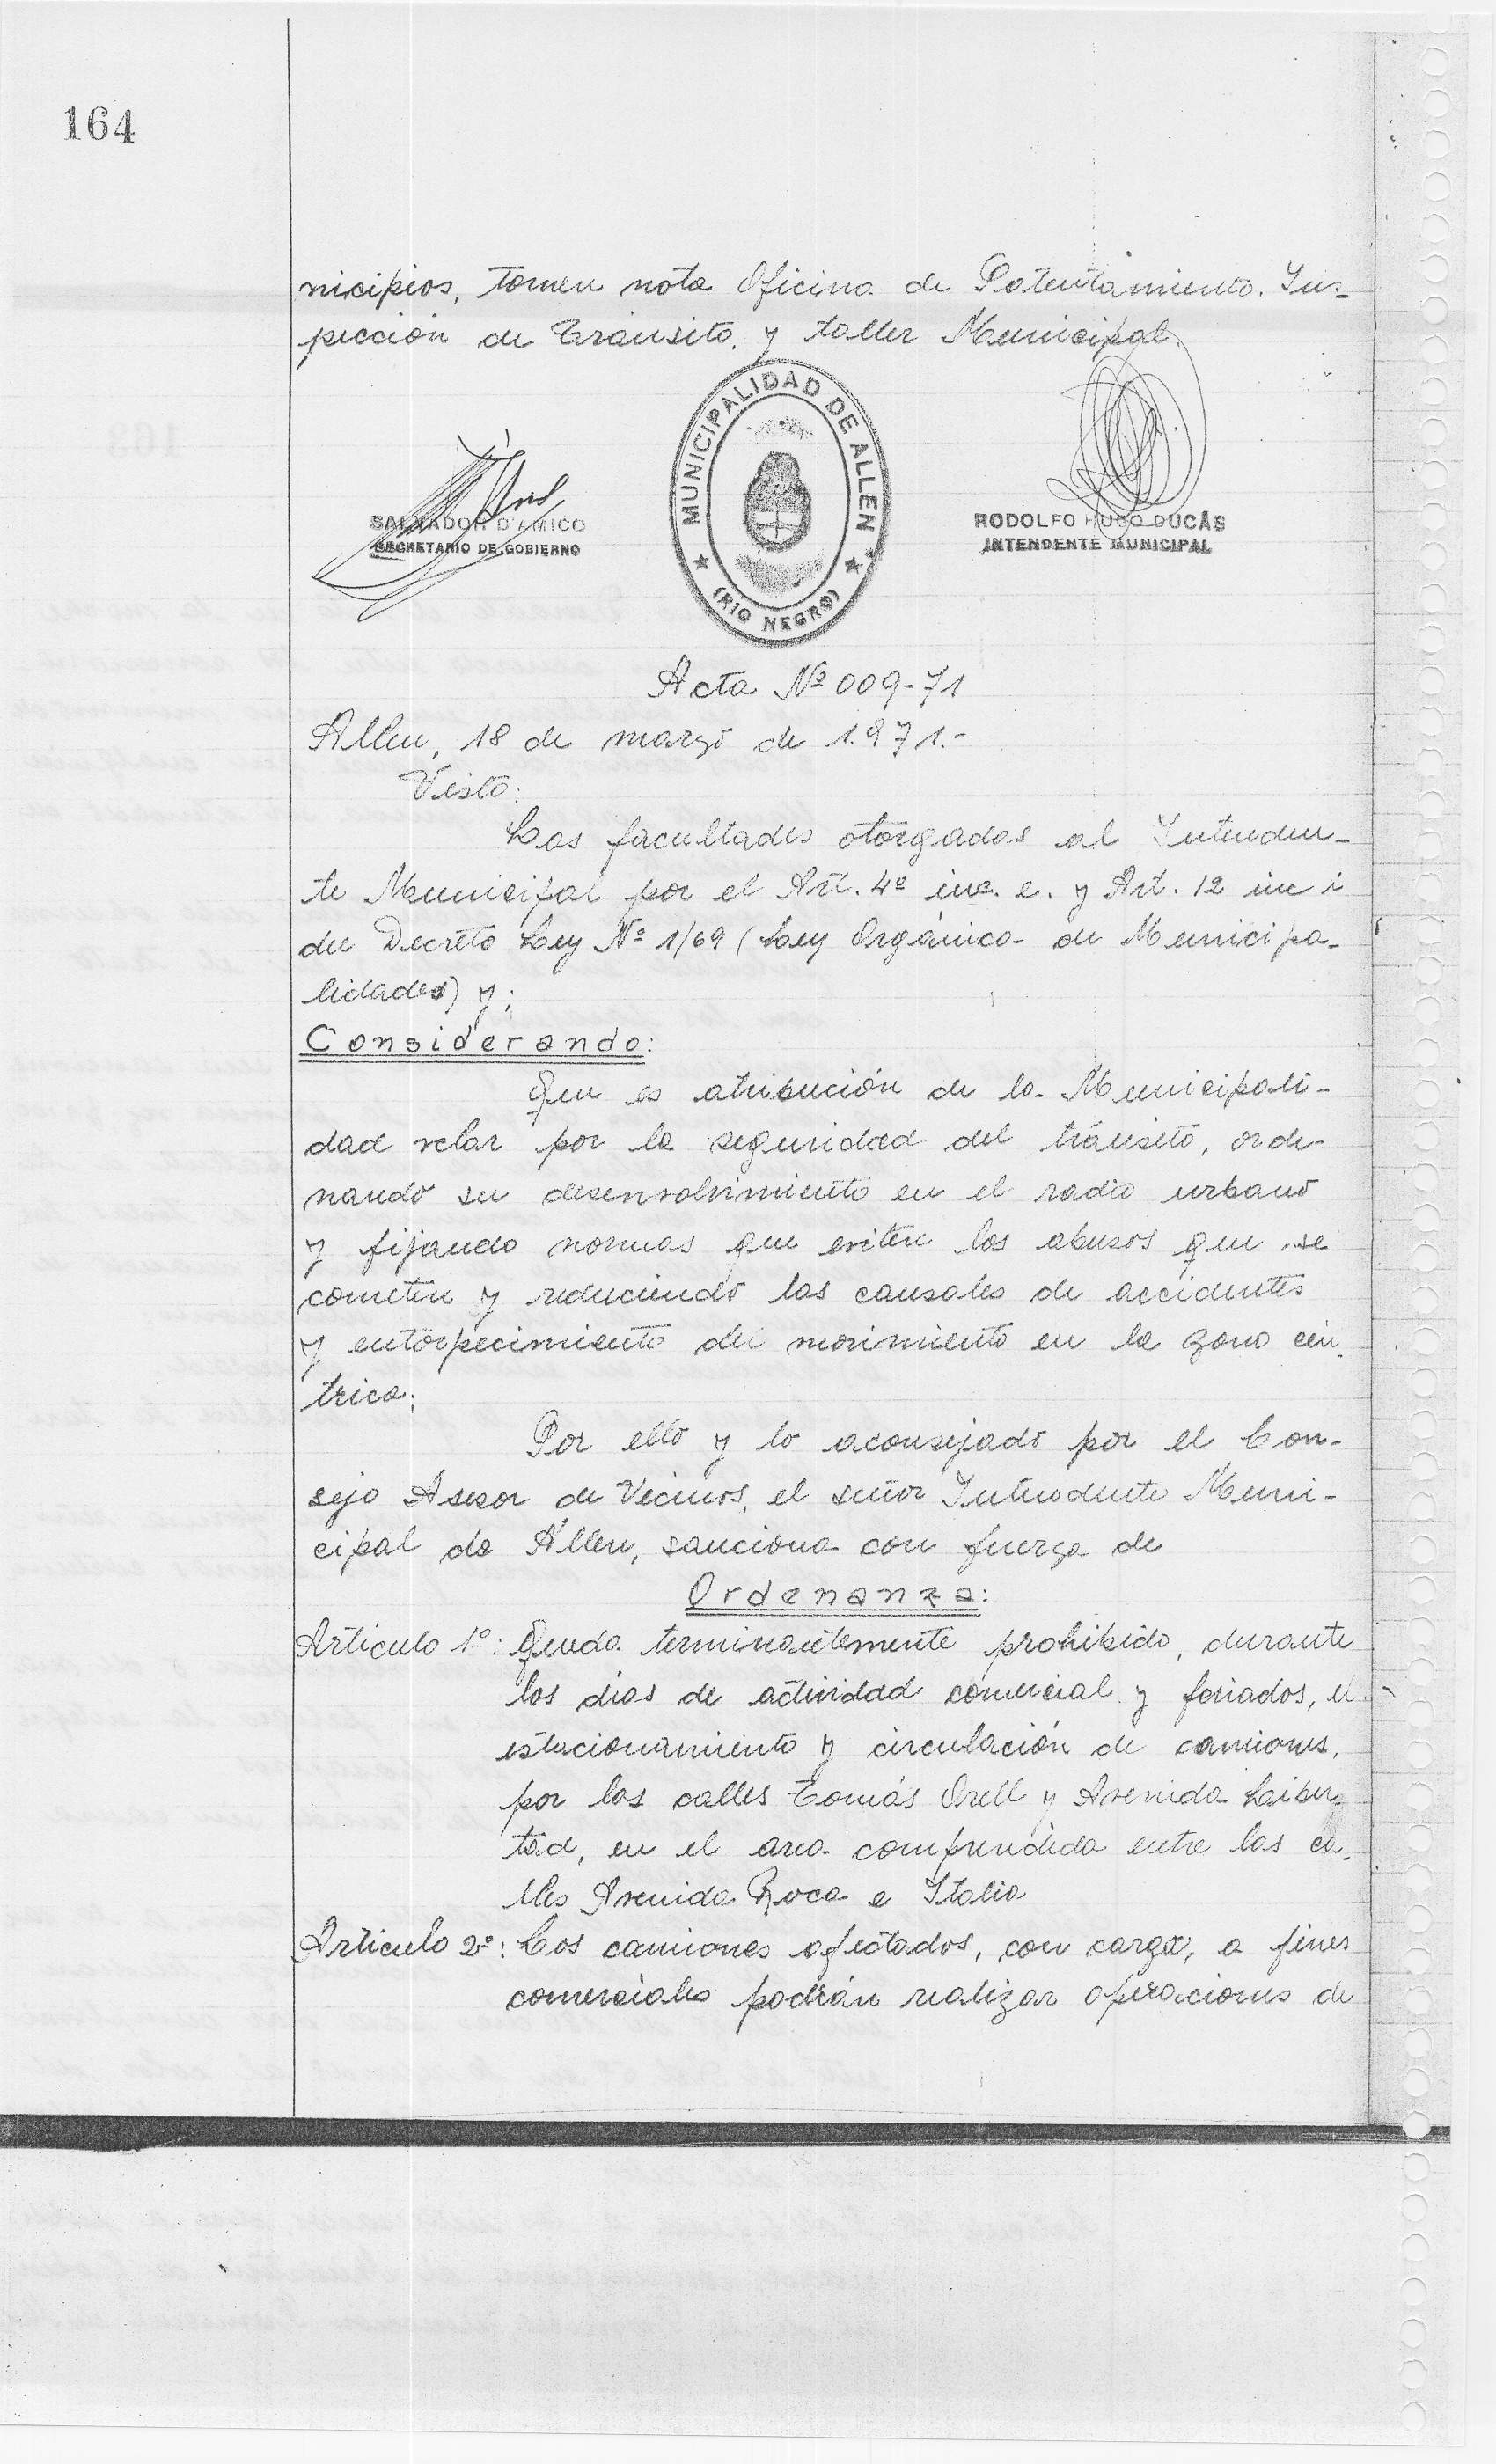 164
nicipios, tomen nota Oficina de Patentamiento. Ins-
pección de Tránsito. y taller Municipal.
MUNICIPALIDAD DE ALLEN
(RIO NEGRO)
SALVADOR D'AMICO
SECRETARIO DE GOBIERNO
RODOLFO HUGO DUCÁS
INTENDENTE MUNICIPAL
Acta Nº 009-71
Allen, 18 de marzo de 1.971.-
Visto:
Las facultades otorgadas al Intenden-
te Municipal por el Art. 4º inc. e. y Art. 12 inc i
del Decreto Ley Nº 1/69 (Ley Orgánica de Municipa-
lidades) y;
Considerando:
Que es atribución de la Municipali-
dad velar por la seguridad del tránsito, orde-
nando su desenvolvimiento en el radio urbano
y fijando normas que eviten los abusos que se
cometen y reduciendo las causales de accidentes
y entorpecimiento del movimiento en la zona cén-
trica;
Por ello y lo aconsejado por el Con-
sejo Asesor de Vecinos, el señor Intendente Muni-
cipal de Allen, sanciona con fuerza de
Ordenanza:
Artículo 1º: Queda terminantemente prohibido, durante
los días de actividad comercial y feriados, el
estacionamiento y circulación de camiones,
por las calles Tomás Orell y Avenida Liber-
tad, en el area comprendida entre las ca-
lles Avenida Roca e Italia
Artículo 2º: Los camiones afectados, con carga, a fines
comerciales podrán realizar operaciones de